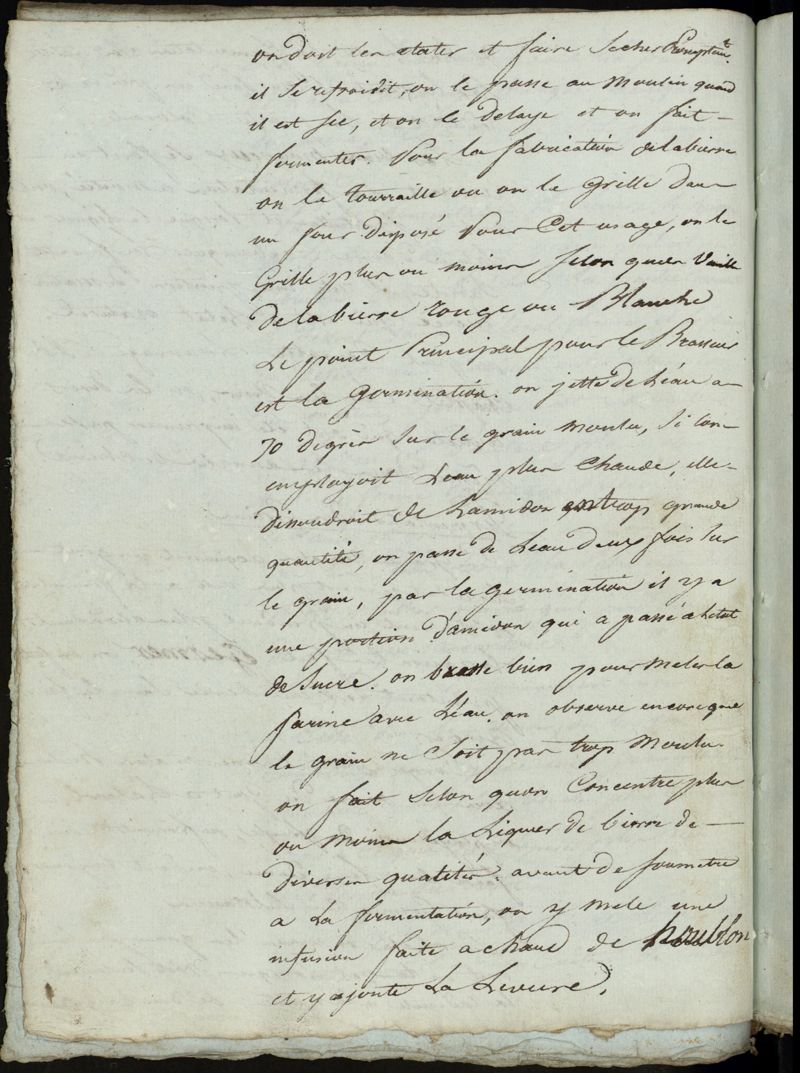 on doit les etater et faire Secher Promptemt.
il se refroidit, on le passe au moulin quand
il est sec, et on le delaye et on fait —
fermenter. Pour la fabrication de la bierre
on le tourraille ou on le grille dans
un four disposé Pour Cet usage, on le
Grille plus ou moins selon qu'on Veuille
de la bierre rouge ou Blanche
Le point Principal pour le Brasseur
est la Germination. on jette de Léau a —
70 degrés sur le grain moulu, Si lon —
employoit Leau plus Chaude, elle —
dissoudroit de Lamidon en trop grande
quantité, on passe de Leau deux fois sur
le grain, par la germination il y a
une portion d'amidon qui a passé a letat
de Sucre. on brasse bien pour meler la
farine avec Léau, on observe encore que
le grain ne Soit pas trop moulu.
on fait Selon quon Concentre plus
ou moins la Liquer de bierre de —
diverses qualités. avant de soumetre
a La fermentation, on y mele une
infusion faite a chaud de houblon
et y ajoute La Levure.